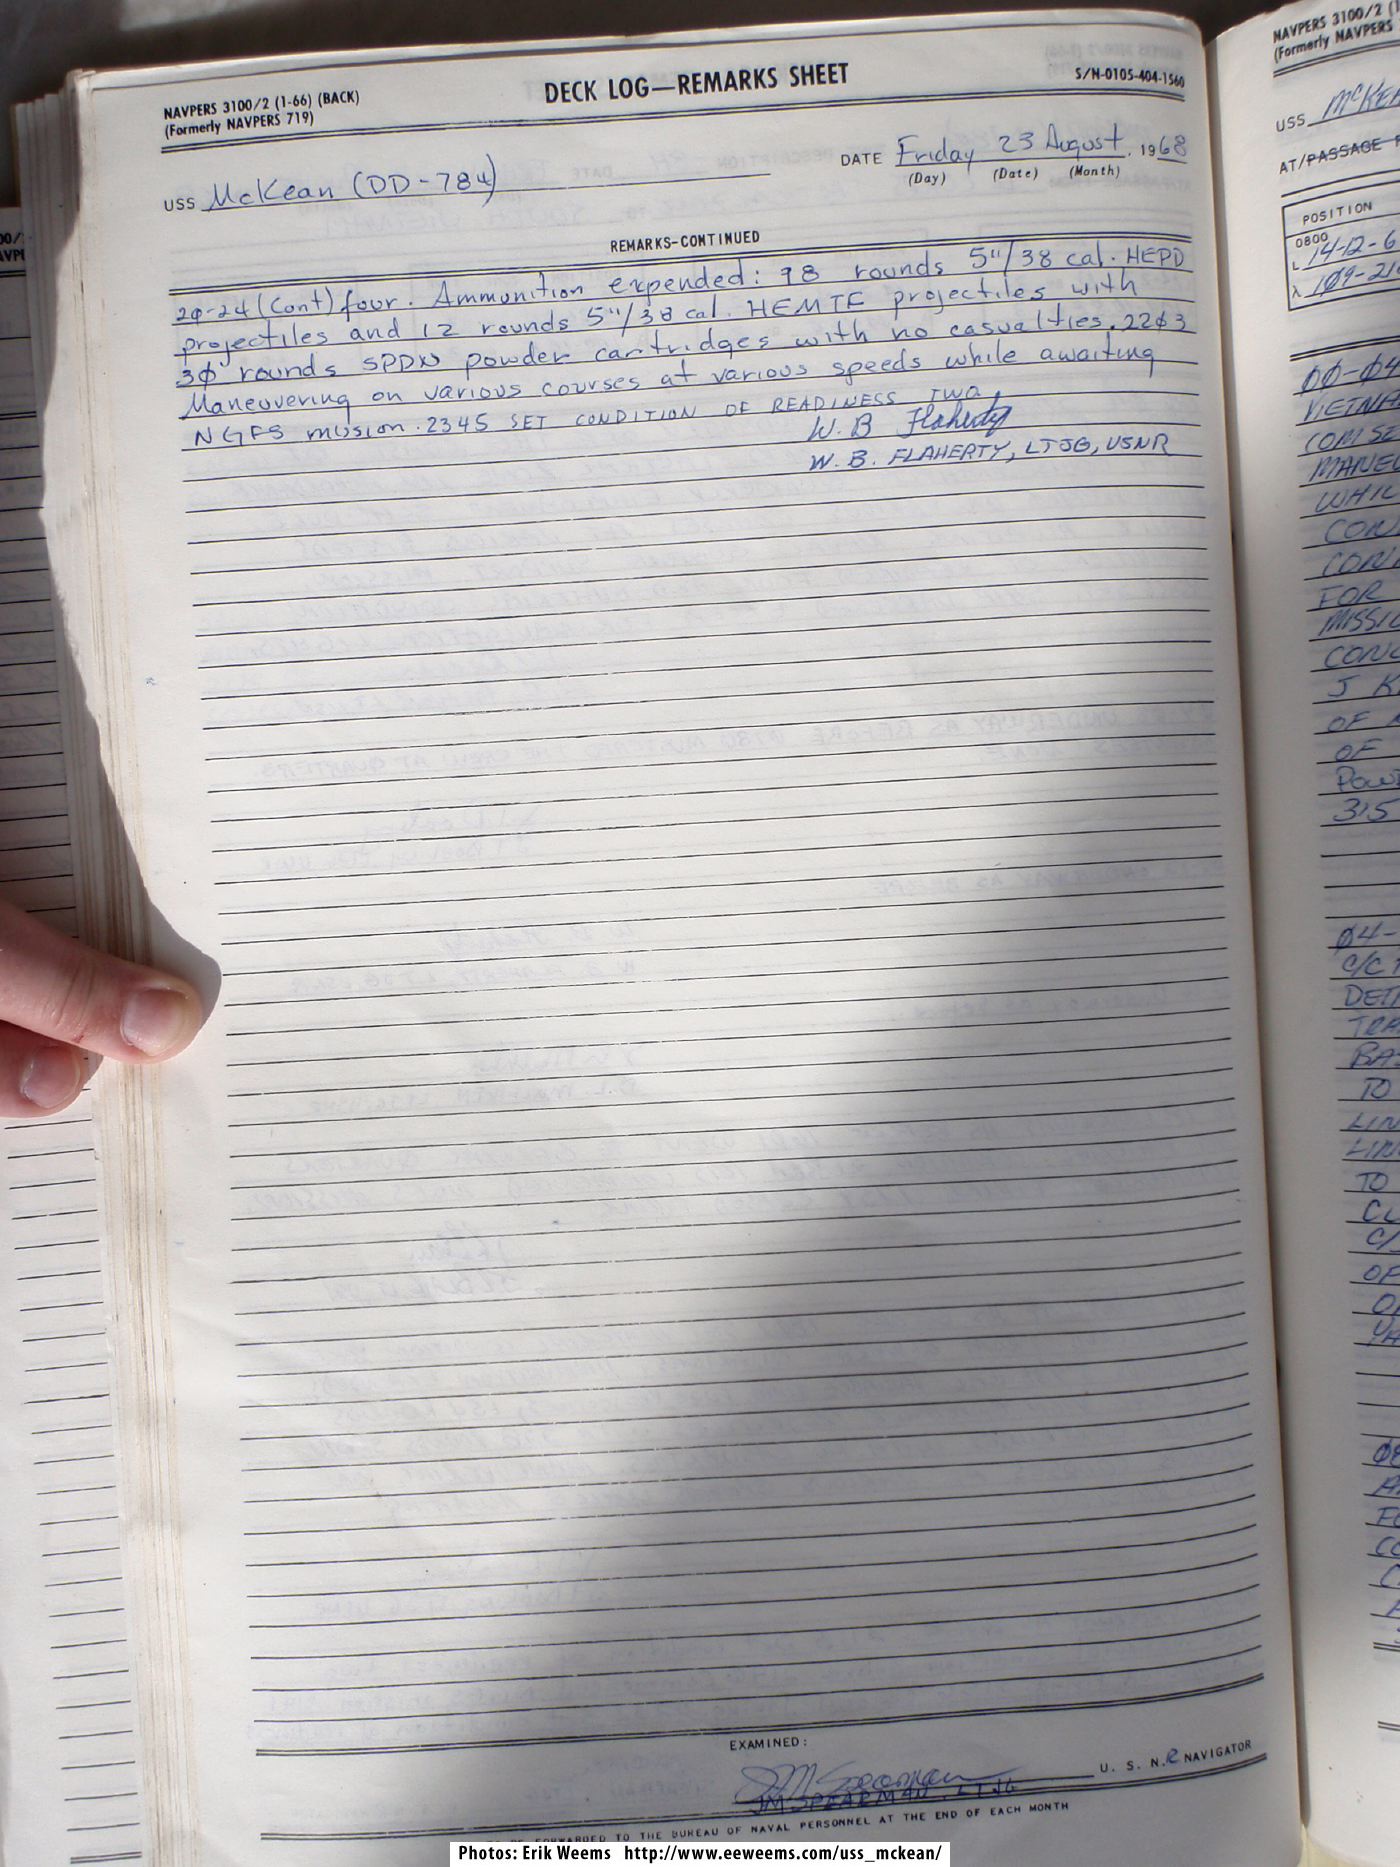 NAVPERS 3100/2 (1-66) (BACK)
(Formerly NAVPERS 719)
DECK LOG—REMARKS SHEET
S/N-0105-404-1560
USS McKean (DD-784)
DATE Friday 23 August, 1968
(Day) (Date) (Month)
REMARKS-CONTINUED
2Ø-24 (Cont) four. Ammunition expended: 18 rounds 5"/38 cal. HEPD
projectiles and 12 rounds 5"/38 cal. HEMTF projectiles with
3Ø rounds SPDN powder cartridges with no casualties. 22Ø3
Maneuvering on various courses at various speeds while awaiting
NGFS mission. 2345 SET CONDITION OF READINESS TWO.
W. B Flaherty
W. B. FLAHERTY, LTJG, USNR
EXAMINED:
JM Spearman
JM SPEARMAN, LTJG
U. S. N.R NAVIGATOR
FORWARDED TO THE BUREAU OF NAVAL PERSONNEL AT THE END OF EACH MONTH
NAVPERS 3100/2
(Formerly NAVPERS
USS McKEA
AT/PASSAGE
POSITION
0800
L 14-12-6
λ 109-21
ØØ-Ø4
VIETNA
COMSE
MANEU
WHIL
CON
FOR
MISSIO
CONC
J K
OF
OF
POW
315
Ø4-
C/C
DETE
TRA
BAS
TO
LIN
LIN
TO
CL
C/
OF
Photos: Erik Weems http://www.eeweems.com/uss_mckean/